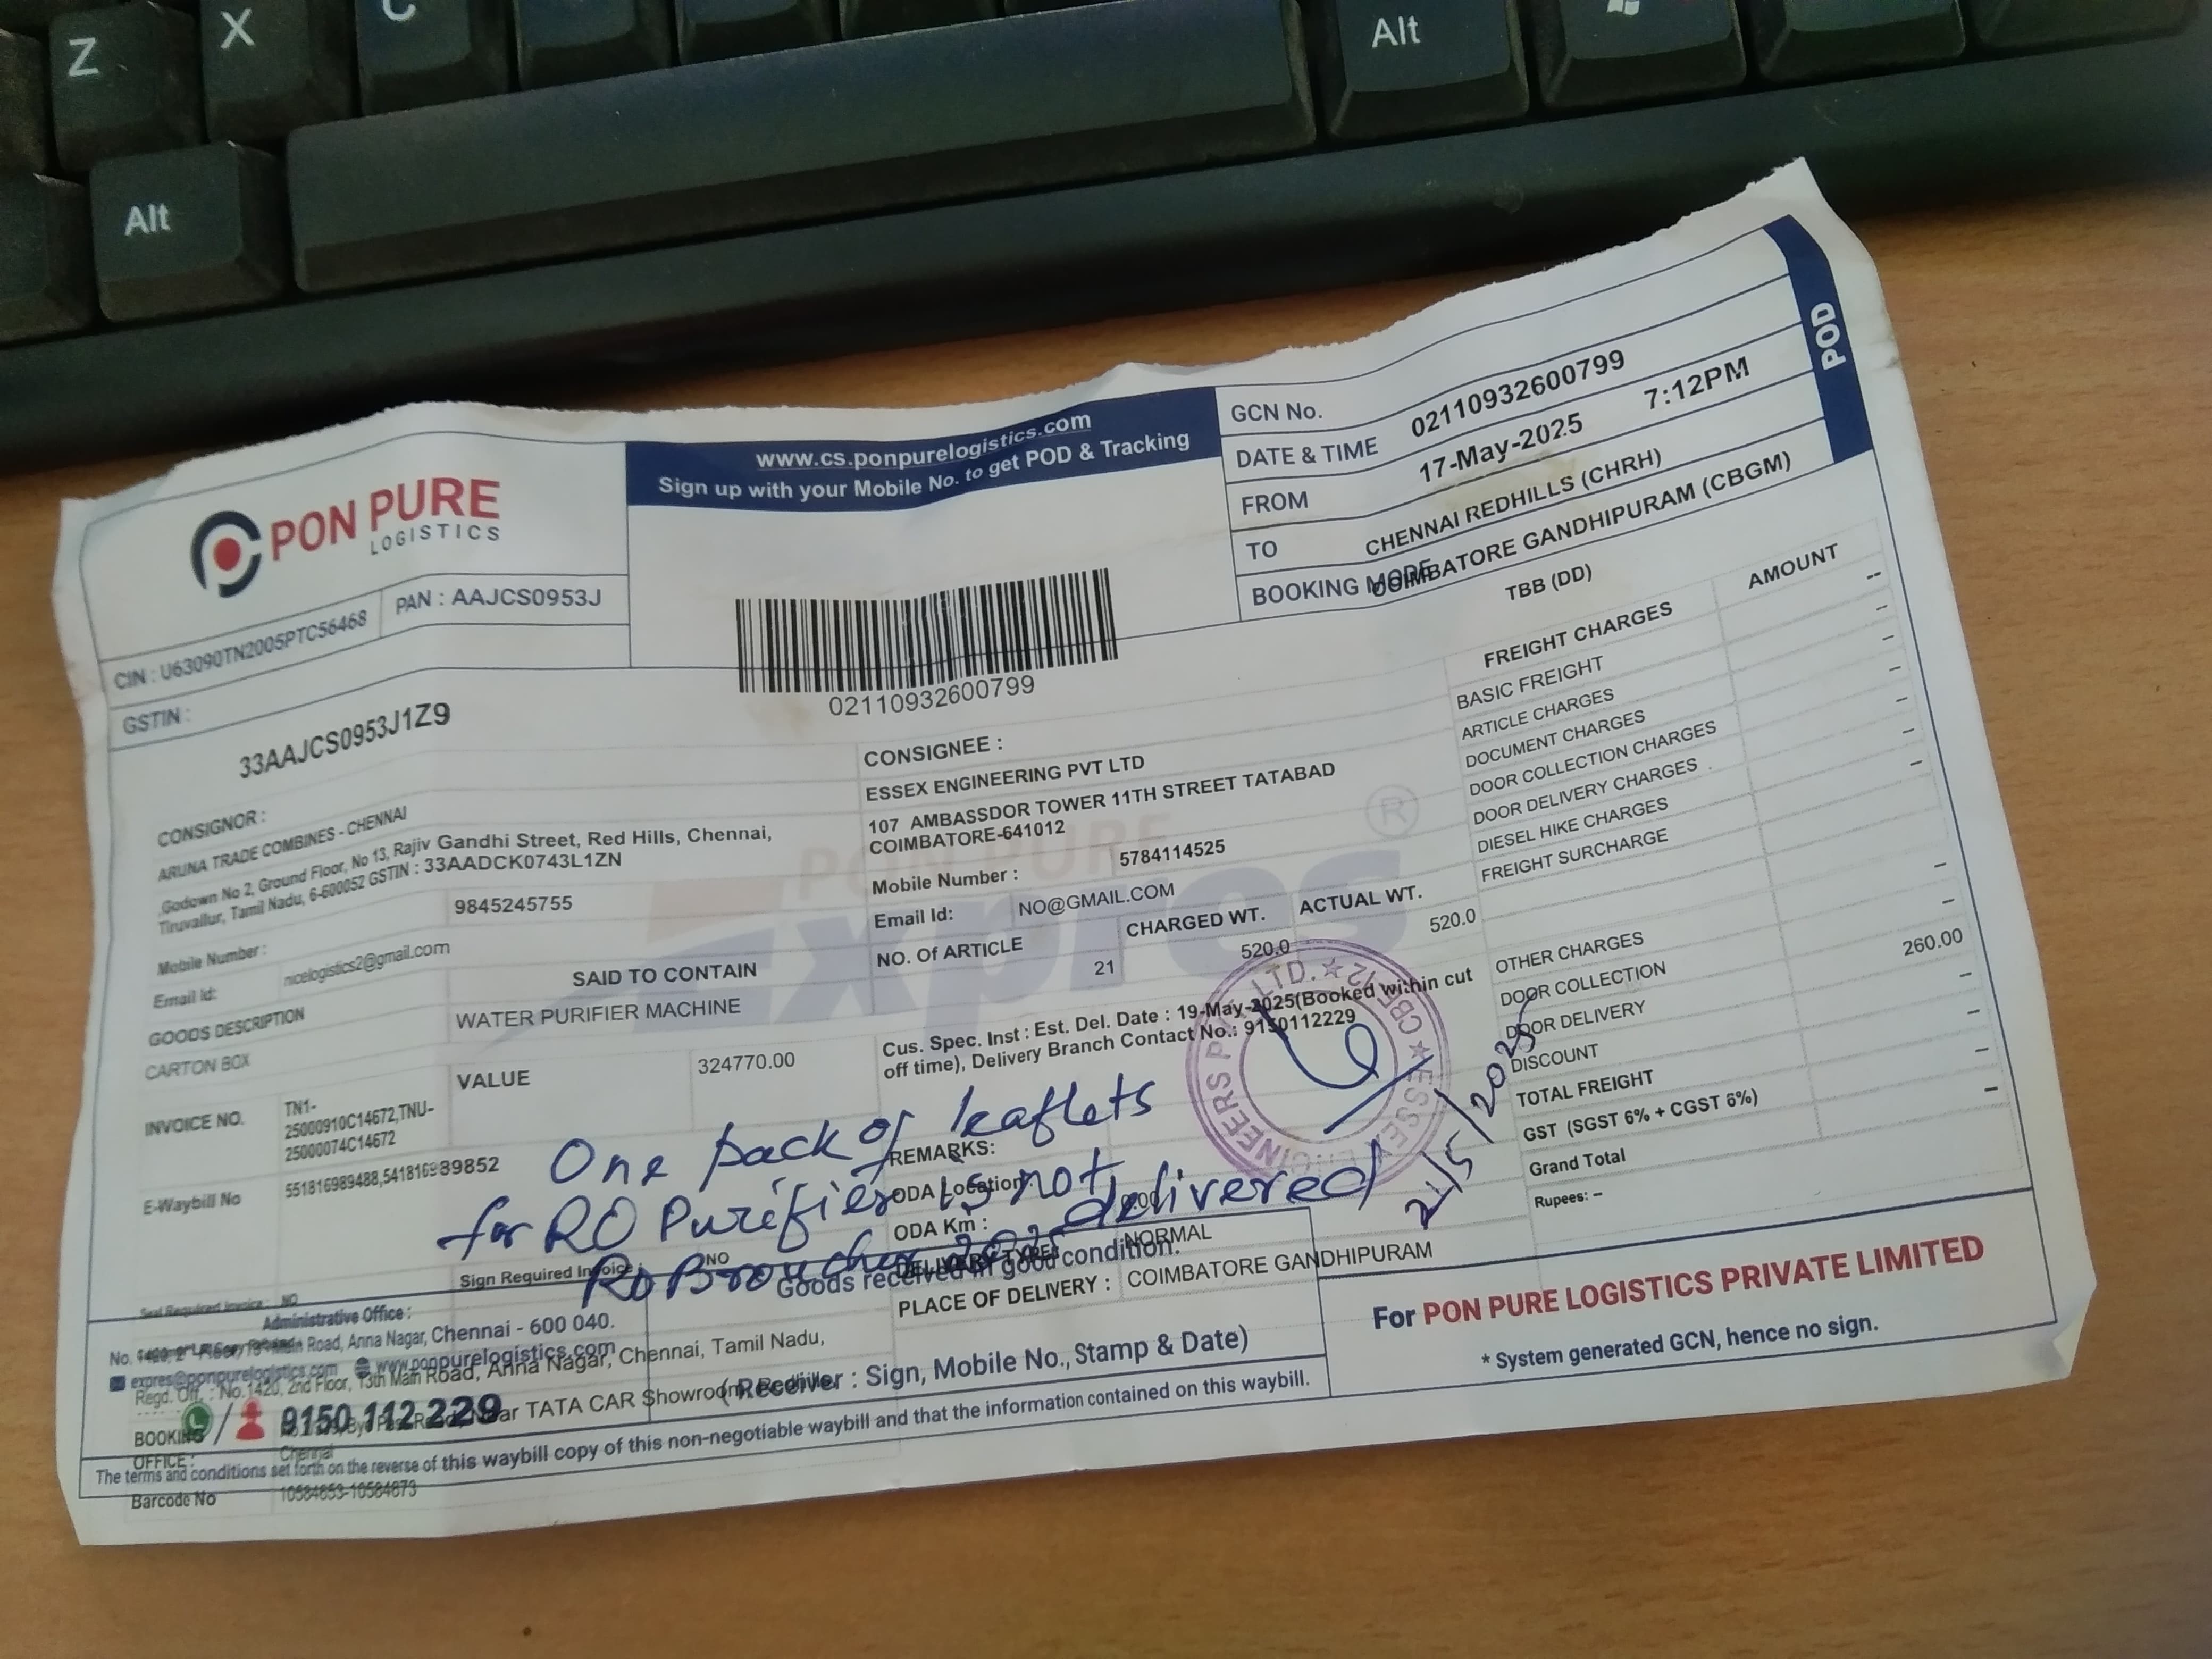 Z X C
Alt Alt
PON PURE
LOGISTICS
CIN : U63090TN2005PTC56468
PAN : AAJCS0953J
GSTIN :
33AAJCS0953J1Z9
www.cs.ponpurelogistics.com
Sign up with your Mobile No. to get POD & Tracking
02110932600799
GCN No. 02110932600799
DATE & TIME 17-May-2025 7:12PM
FROM CHENNAI REDHILLS (CHRH)
TO COIMBATORE GANDHIPURAM (CBGM)
BOOKING MODE TBB (DD)
POD
CONSIGNOR :
ARUNA TRADE COMBINES - CHENNAI
Godown No 2, Ground Floor, No 13, Rajiv Gandhi Street, Red Hills, Chennai,
Tiruvallur, Tamil Nadu, 6-600052 GSTIN : 33AADCK0743L1ZN
Mobile Number : 9845245755
Email Id: nicelogistics2@gmail.com
CONSIGNEE :
ESSEX ENGINEERING PVT LTD
107 AMBASSDOR TOWER 11TH STREET TATABAD
COIMBATORE-641012
Mobile Number : 5784114525
Email Id: NO@GMAIL.COM
PON PURE
Expres ®
GOODS DESCRIPTION SAID TO CONTAIN
CARTON BOX WATER PURIFIER MACHINE
NO. Of ARTICLE CHARGED WT. ACTUAL WT.
21 520.0 520.0
INVOICE NO. TN1-
25000910C14672,TNU-
25000074C14672
VALUE 324770.00
E-Waybill No 551816989488,541816989852
Cus. Spec. Inst : Est. Del. Date : 19-May-2025(Booked within cut
off time), Delivery Branch Contact No.: 9150112229
FREIGHT CHARGES AMOUNT
BASIC FREIGHT --
ARTICLE CHARGES --
DOCUMENT CHARGES --
DOOR COLLECTION CHARGES --
DOOR DELIVERY CHARGES --
DIESEL HIKE CHARGES --
FREIGHT SURCHARGE --
OTHER CHARGES --
DOOR COLLECTION --
DOOR DELIVERY 260.00
DISCOUNT --
TOTAL FREIGHT --
GST (SGST 6% + CGST 6%) --
Grand Total --
Rupees: --
ESSEX ENGINEERS PVT. LTD. ★ CBE-12 ★
21/5/2025
One pack of leaflets
for RO Purifier is not
delivered
REMARKS:
ODA Location
ODA Km : 0.00
DELIVERY TYPE: NORMAL
PLACE OF DELIVERY : COIMBATORE GANDHIPURAM
Sign Required Invoice : NO
Seal Required Invoice : NO
Goods received in good condition.
(Receiver : Sign, Mobile No., Stamp & Date)
Administrative Office :
13th Main Road, Anna Nagar, Chennai - 600 040.
expres@ponpurelogistics.com www.ponpurelogistics.com
Regd. Off. : No.1420, 2nd Floor, 13th Main Road, Anna Nagar, Chennai, Tamil Nadu,
9150 112 229
BOOKING OFFICE : Near TATA CAR Showroom, Redhills,
Chennai
The terms and conditions set forth on the reverse of this waybill copy of this non-negotiable waybill and that the information contained on this waybill.
Barcode No 10584653-10584673
For PON PURE LOGISTICS PRIVATE LIMITED
* System generated GCN, hence no sign.